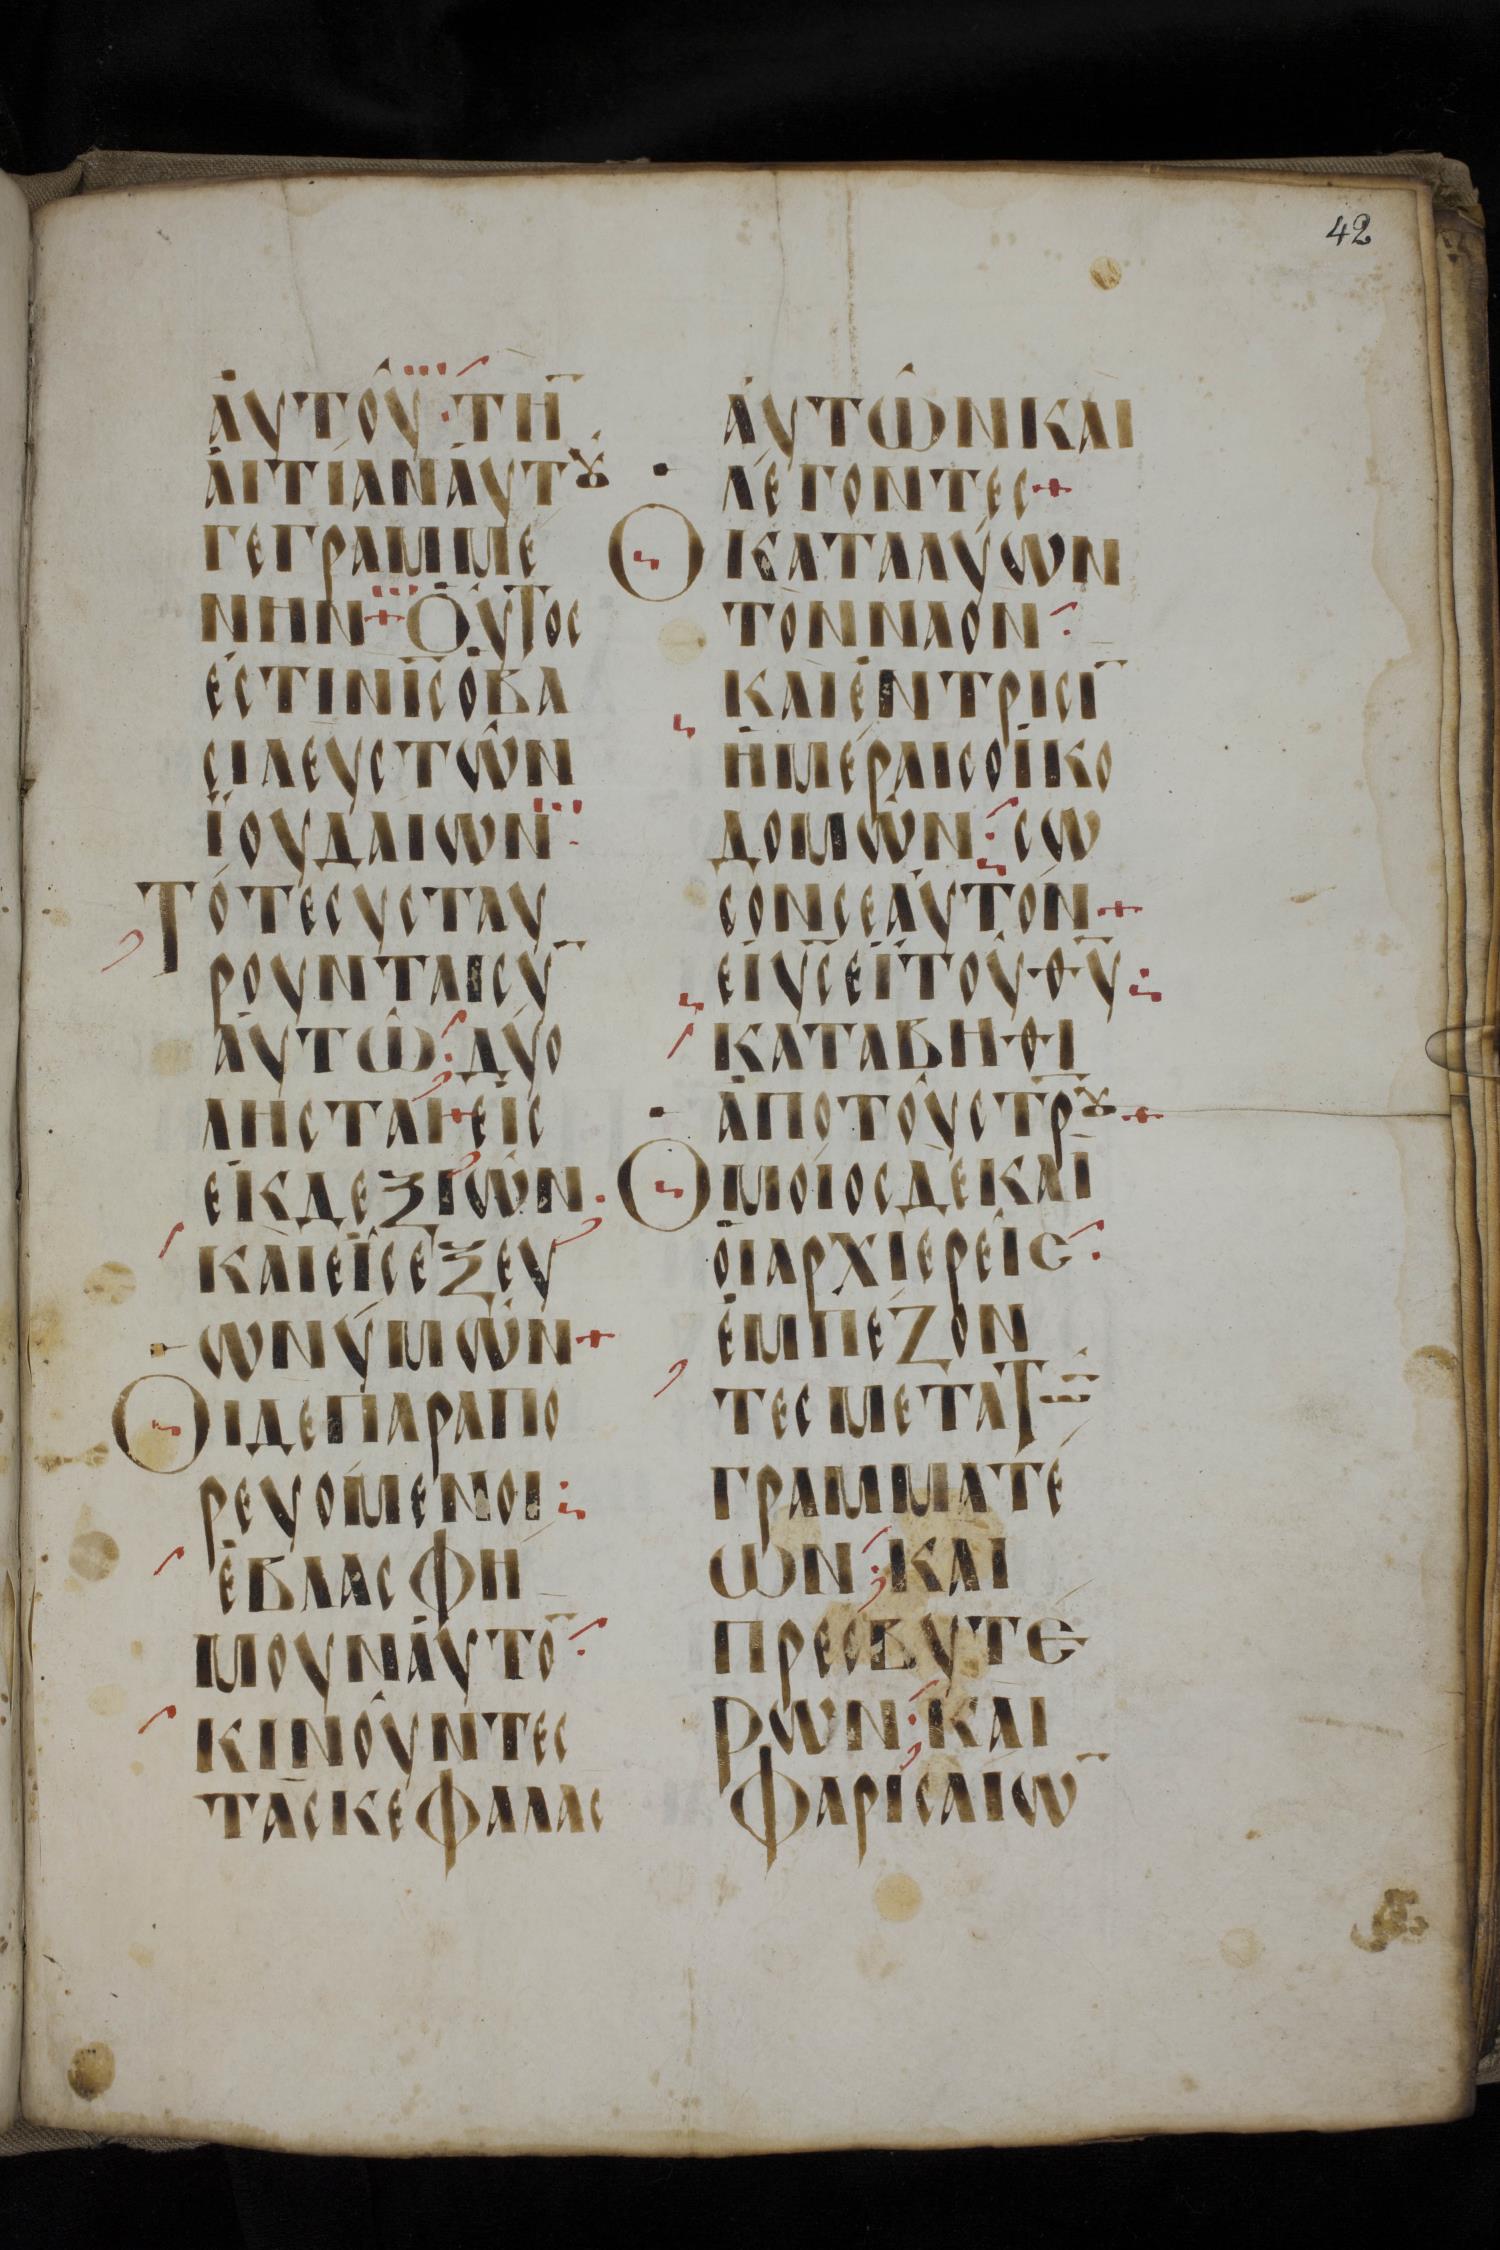 42
ἀυτοῦ· τὴ̅
ἀιτίαν ἀυτȣ
γεγραμμέ
νην+ Οὗτος
ἐστιν ι̅ς̅ ὁ βα
σιλευς τῶν
ϊουδαίων·
Τότε συσταυ
ρουνται συ̅
ἀυτῶ· δύο
λησταί+ εἷς
ἐκ δεξιῶν·
καὶ εἷς ἐξ ευ
ωνύμων+
Οι δε παραπο
ρευόμενοι:
ἐβλασφή
μουν ἀυτο̅·
κινοῦντες
τὰς κεφαλας
ἀυτῶν και
λέγοντες+
Ο καταλύων
τὸν ναον·
και ἐν τρισι̅
ἡμέραις οἰκο
δομῶν· σω
σον σεἀυτόν+
εἰ υ̅ς̅ εἶ τοῦ θ̅υ̅:
κατάβηθι
ἀπὸ τοῦ στ̅ρ̅ȣ+
Ομοίος δὲ και
ὁι αρχιερεῖς·
ἐμπέζον
τες μετα τῶ̅
γραμματέ
ων· και
πρεσβυτέ
ρων· και
Φαρισαίω̅